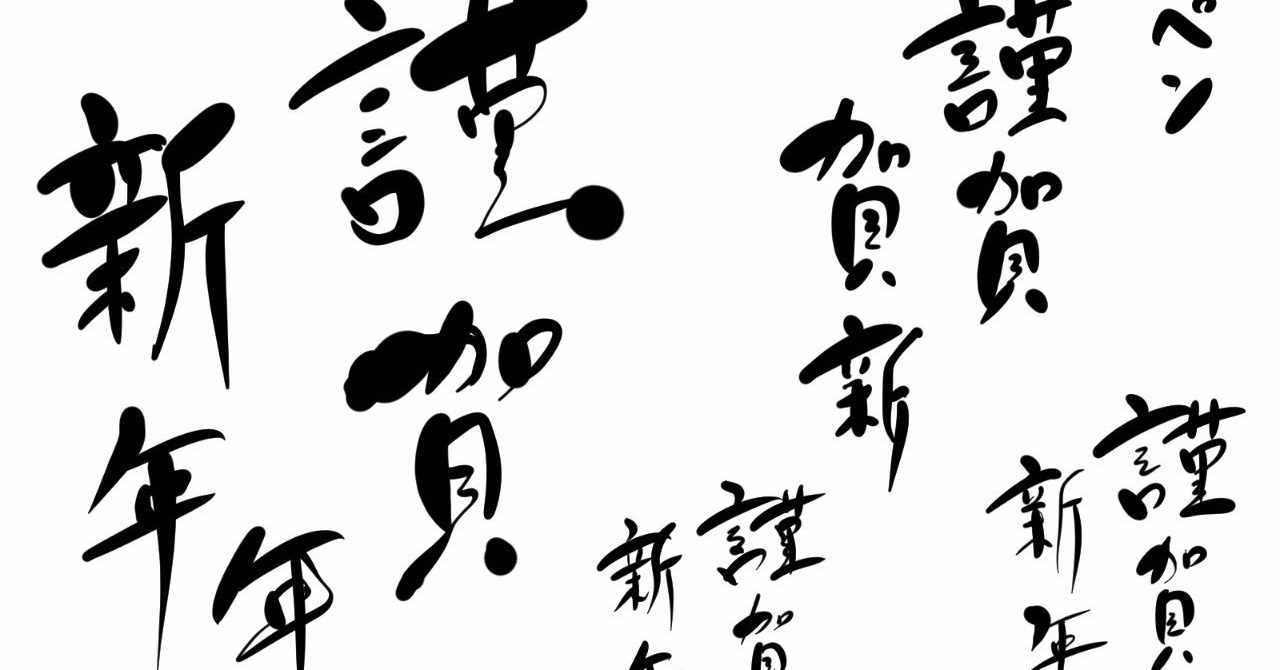 ペン
謹賀
賀新
謹賀
新年年
謹賀
新年
謹賀
新年